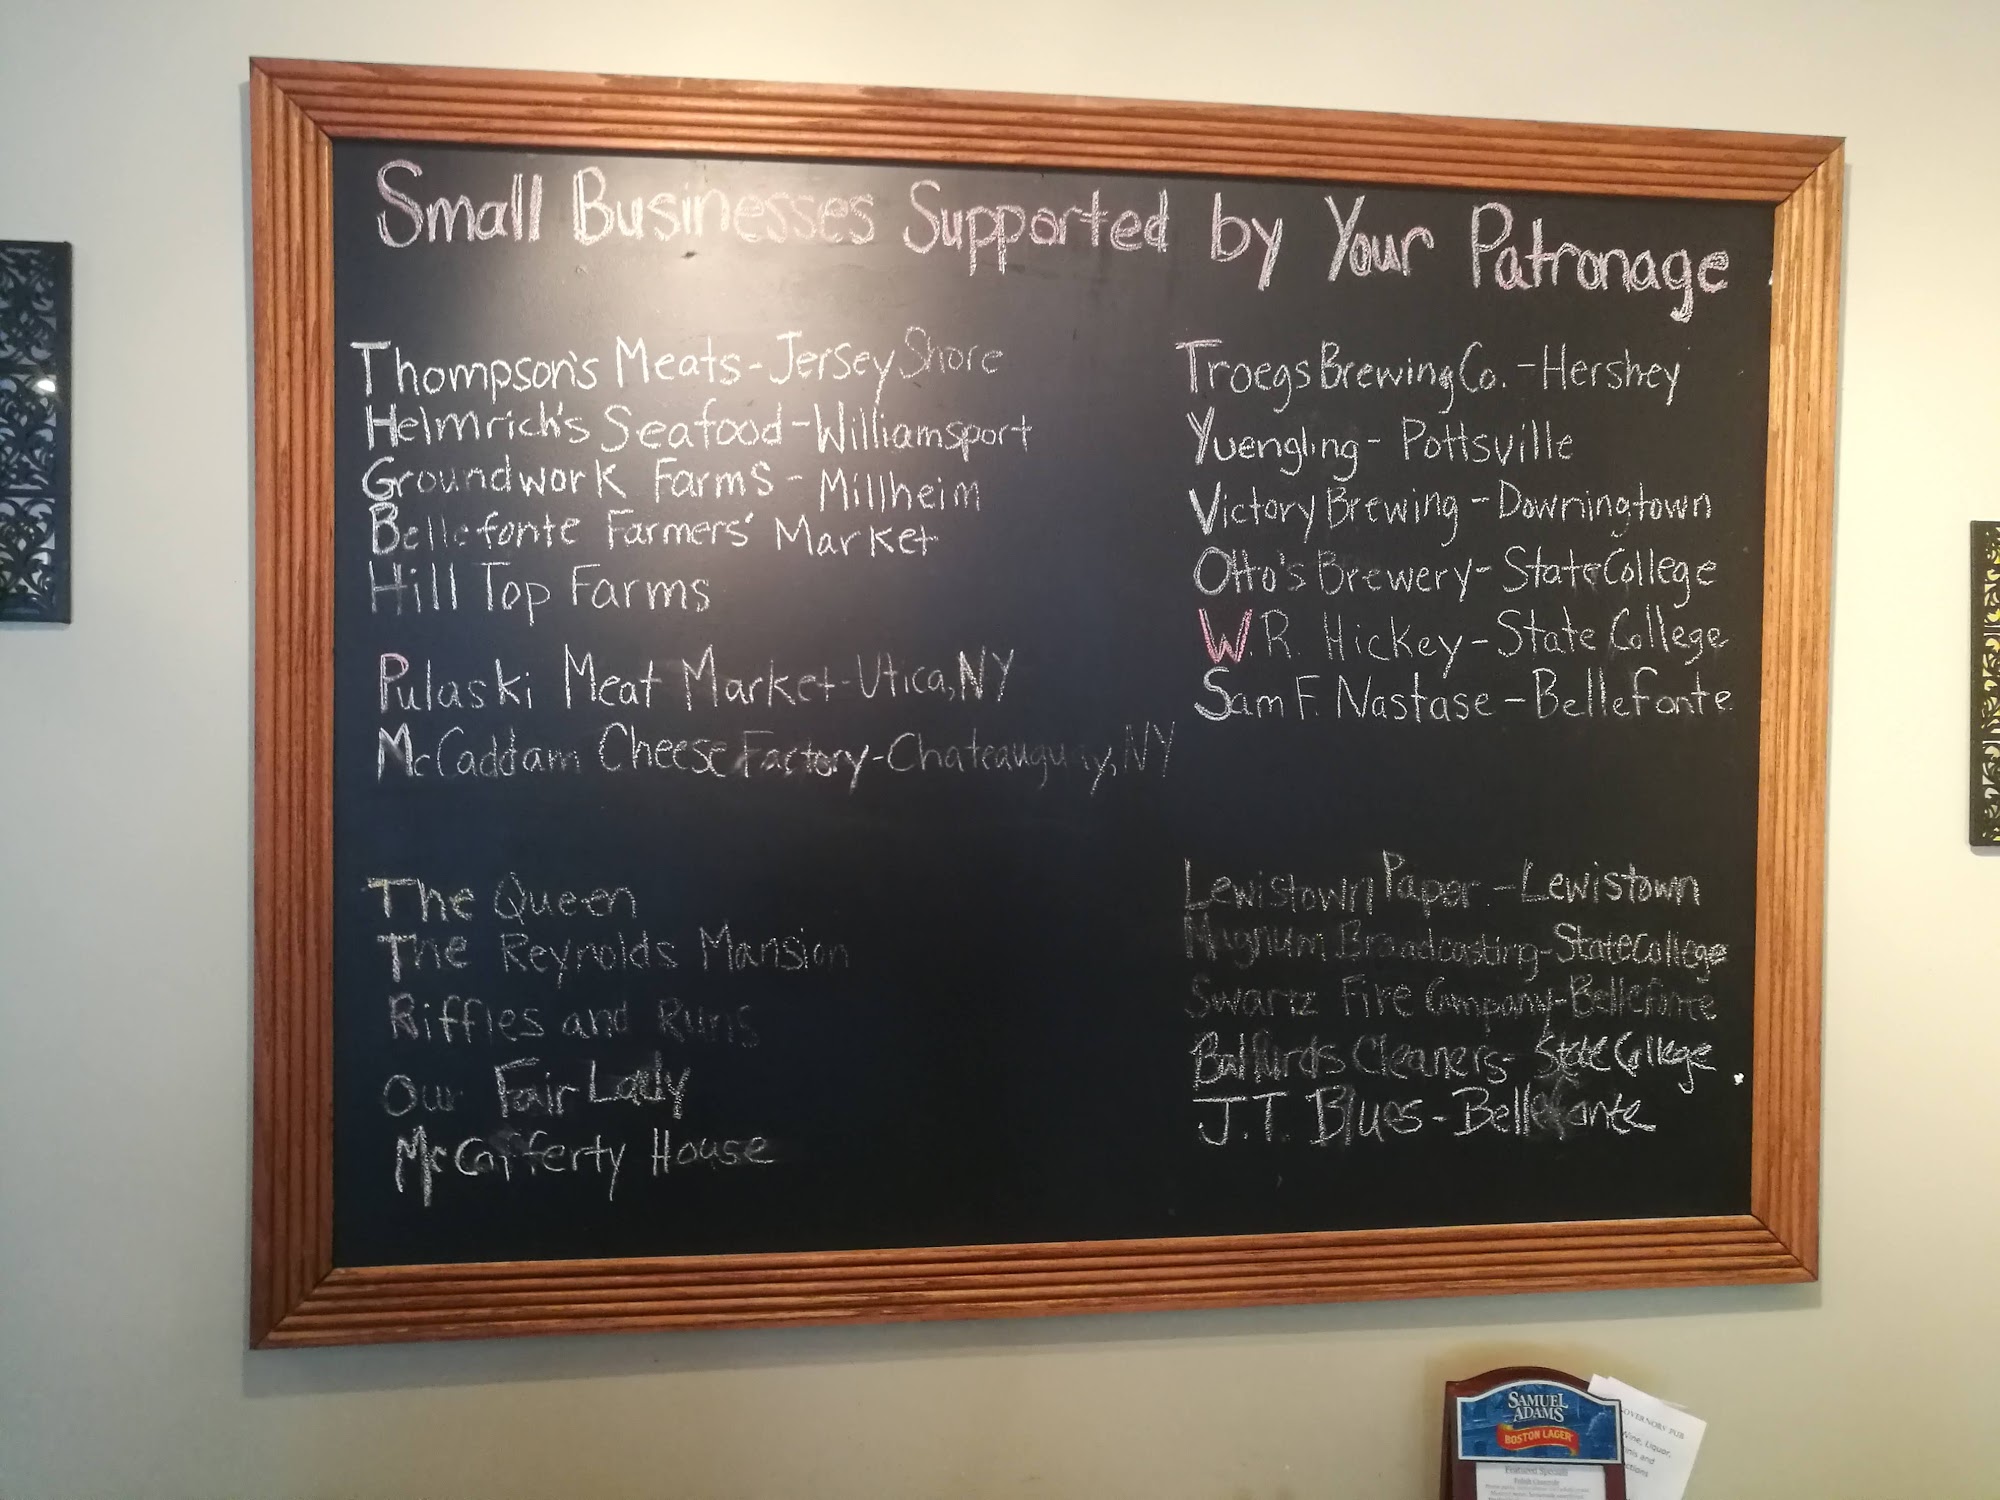 Small Businesses Supported by Your Patronage
Thompson's Meats - Jersey Shore
Helmrich's Seafood - Williamsport
Groundwork Farms - Millheim
Bellefonte Farmers' Market
Hill Top Farms
Pulaski Meat Market - Utica, NY
McCaddam Cheese Factory - Chateauguay, NY
The Queen
The Reynolds Mansion
Riffles and Runs
Our Fair Lady
McCafferty House
Troegs Brewing Co. - Hershey
Yuengling - Pottsville
Victory Brewing - Downingtown
Otto's Brewery - State College
W.R. Hickey - State College
Sam F. Nastase - Bellefonte
Lewistown Paper - Lewistown
Magnum Broadcasting - State College
Swartz Fire Company - Bellefonte
Balfurds Cleaners - State College
J.T. Blues - Bellefonte
SAMUEL
ADAMS
BOSTON LAGER
Featured Specials
GOVERNORS' PUB
Wine, Liquor,